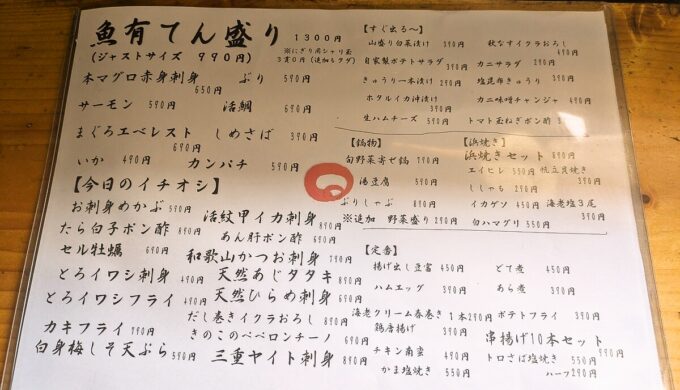 魚有てん盛り 1300円
(ジャストサイズ 990円)
※にぎり用シャリ玉
3貫0円(追加もタダ)
本マグロ赤身刺身 650円
ぶり 590円
サーモン 590円
活鯛 690円
まぐろエベレスト 690円
しめさば 390円
いか 490円
カンパチ 590円
【今日のイチオシ】
お刺身めかぶ 590円
活紋甲イカ刺身 890円
たら白子ポン酢 890円
あん肝ポン酢 690円
セル牡蠣 690円
和歌山かつお刺身 790円
とろイワシ刺身 490円
天然あじタタキ 890円
とろイワシフライ 490円
天然ひらめ刺身 890円
だし巻きイクラおろし 890円
カキフライ 790円
きのこのペペロンチーノ 690円
白身梅しそ天ぷら 590円
三重ヤイト刺身 890円
【すぐ出る～】
山盛り白菜漬け 390円
秋なすイクラおろし 490円
自家製ポテトサラダ 390円
カニサラダ 290円
きゅうり一本漬け 290円
塩昆布きゅうり 390円
ホタルイカ沖漬け 390円
カニ味噌チャンジャ 490円
生ハムチーズ 590円
トマト玉ねぎポン酢
【鍋物】
旬野菜寄せ鍋 790円
湯豆腐 590円
ぶりしゃぶ 890円
※追加 野菜盛り 290円
【浜焼き】
浜焼きセット 890円
エイヒレ 550円
帆立貝焼き
ししゃも 290円
イカゲソ 450円
海老塩3尾
白ハマグリ 550円
【定番】
揚げ出し豆富 450円
どて煮 450円
ハムエッグ 390円
あら煮 390円
海老クリーム春巻き 1本290円
ポテトフライ 390円
鶏唐揚げ 390円
串揚げ10本セット 990円
チキン南蛮 490円
トロさば塩焼き 550円
かま塩焼き 550円
ハーフ290円